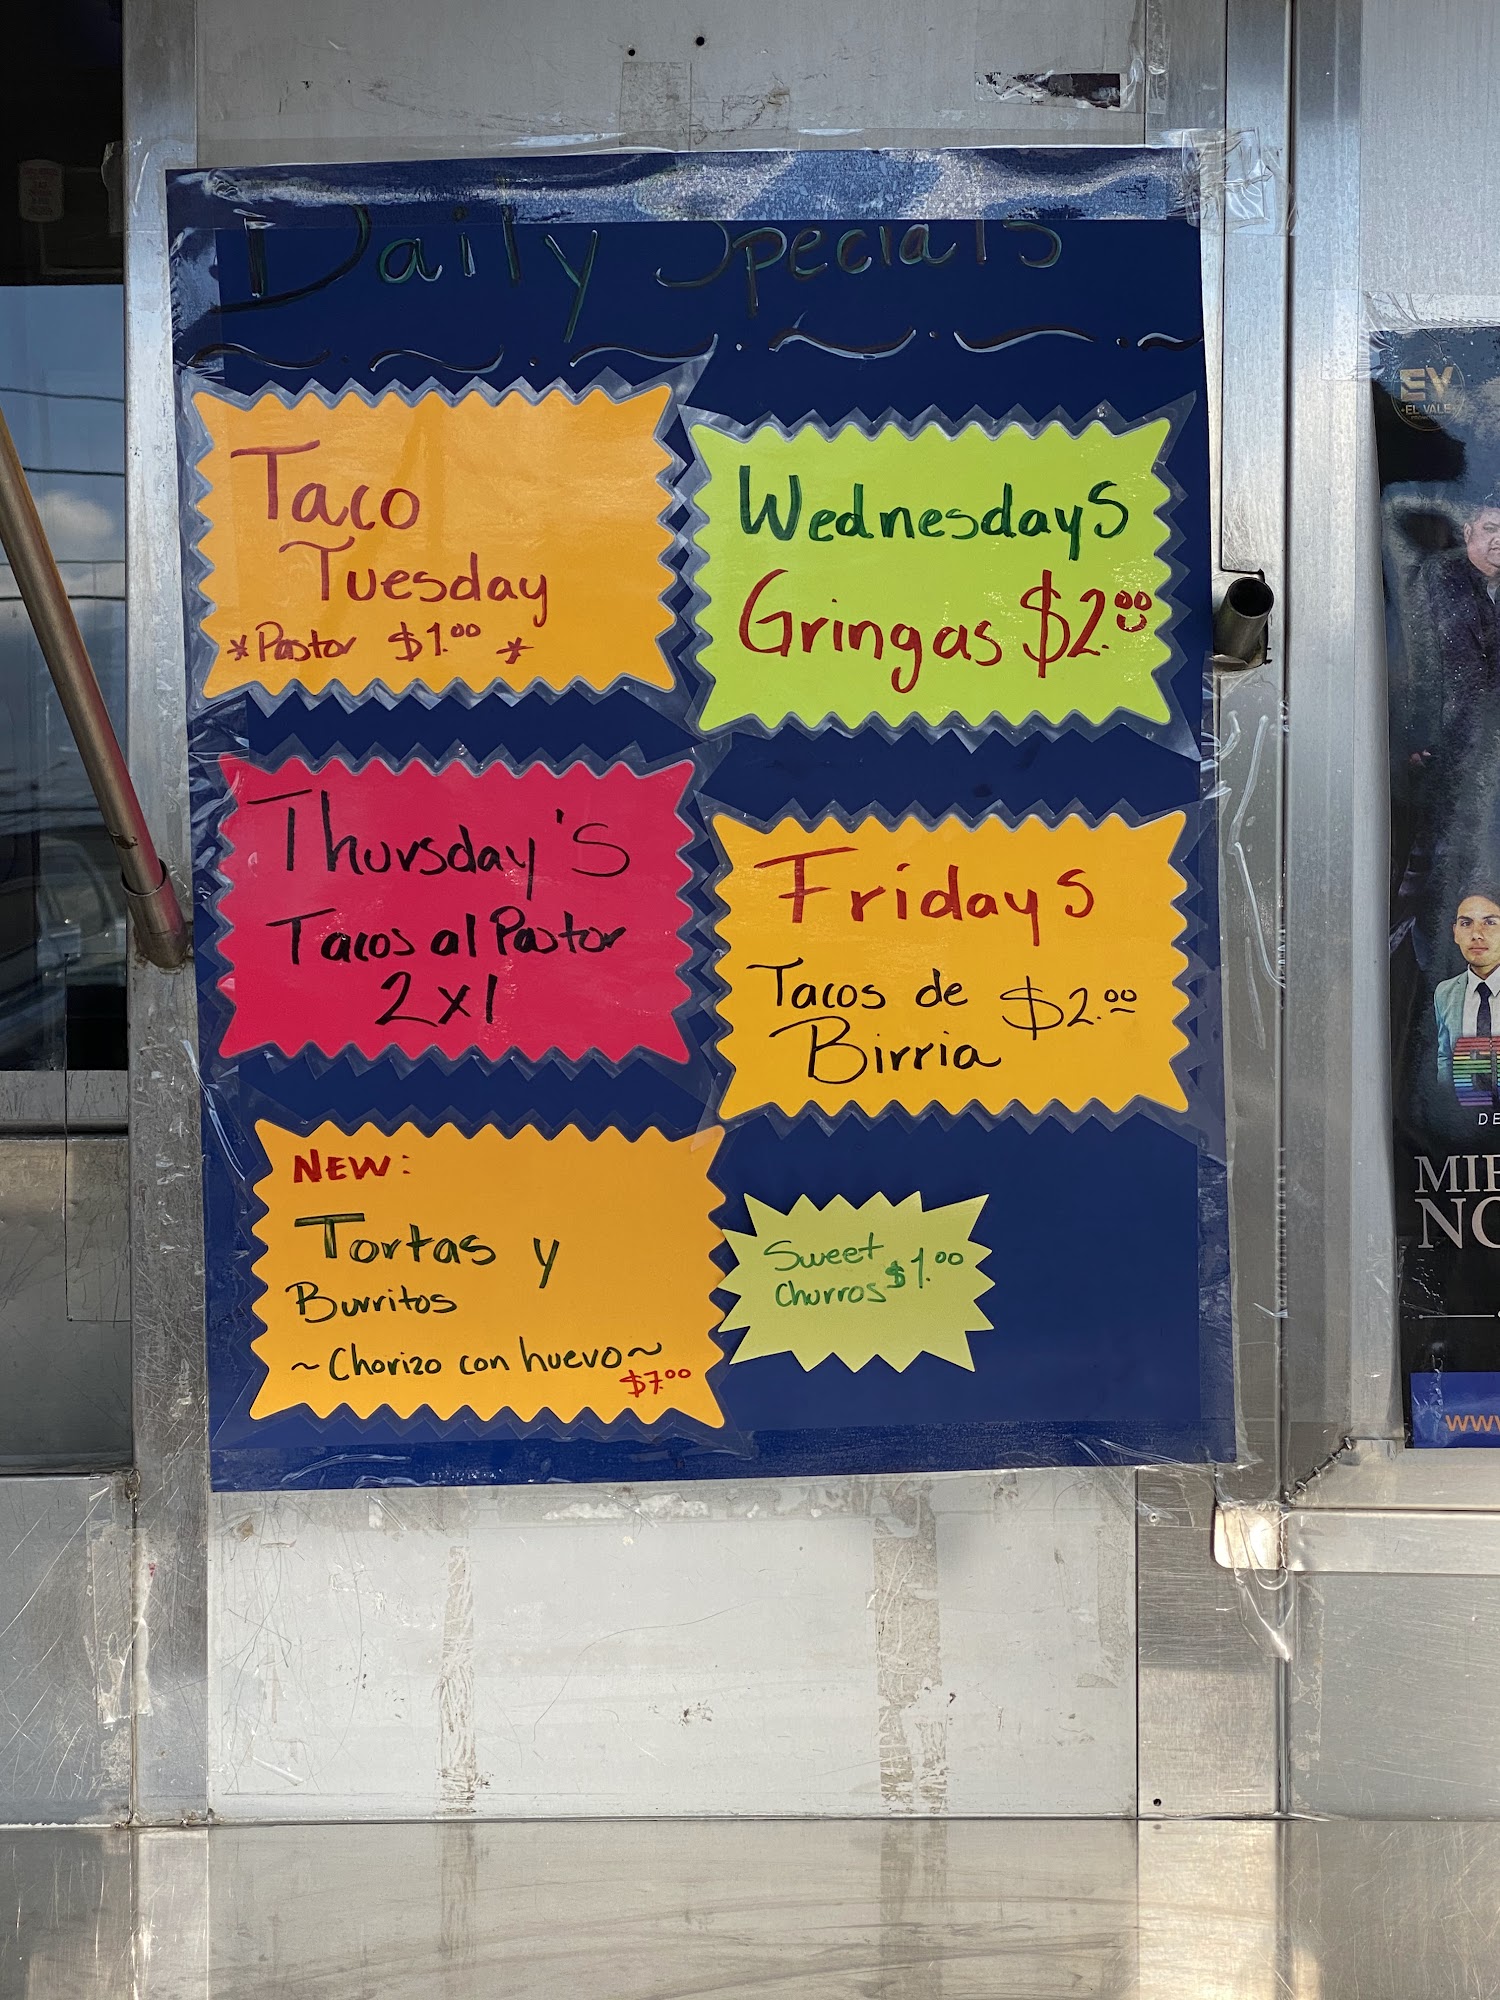 Daily Specials
Taco
Tuesday
*Pastor $1.00 *
Wednesdays
Gringas $2.00
Thursday's
Tacos al Pastor
2x1
Fridays
Tacos de
Birria $2.00
NEW:
Tortas y
Burritos
~Chorizo con huevo~
$7.00
Sweet
Churros $1.00
EV
EL VALE
DE
MIE
NO
www